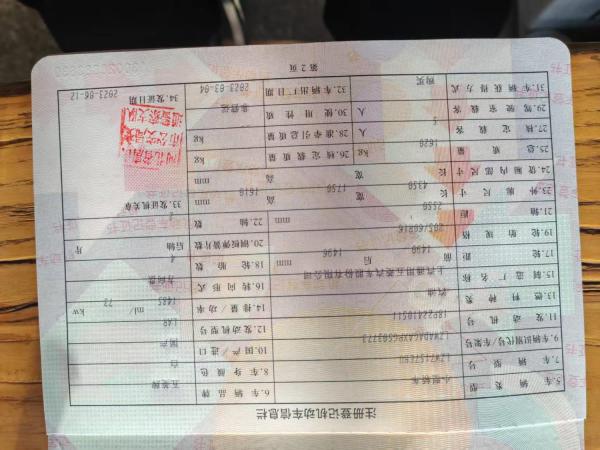 注册登记机动车信息栏
5.车辆类型 小型轿车 6.车辆品牌 五菱牌
7.车辆型号 8.车身颜色 白
9.车辆识别代号/车架号 10.国产/进口 国产
11.发动机号 12.发动机型号 LAR
13.燃料种类 汽油 14.排量/功率 1485 ml/ 73 kw
15.制造厂名称 上汽通用五菱汽车股份有限公司 16.转向形式 方向盘
17.轮距 前 1490 后 1496 mm 18.轮胎数 4
19.轮胎规格 205/60R16 20.钢板弹簧片数 后轴 片
21.轴距 2550 mm 22.轴数 2
23.外廓尺寸 长 4350 宽 1750 高 1610 mm
24.货厢内部尺寸 长 宽 高 mm
25.总质量 1620 kg 26.核定载质量 kg
27.核定载客 人 28.准牵引总质量 kg
29.驾驶室载客 人 30.使用性质 非营运
31.车辆获得方式 购买 32.车辆出厂日期 2023-03-04
33.发证机关章
34.发证日期 2023-06-12
第2页